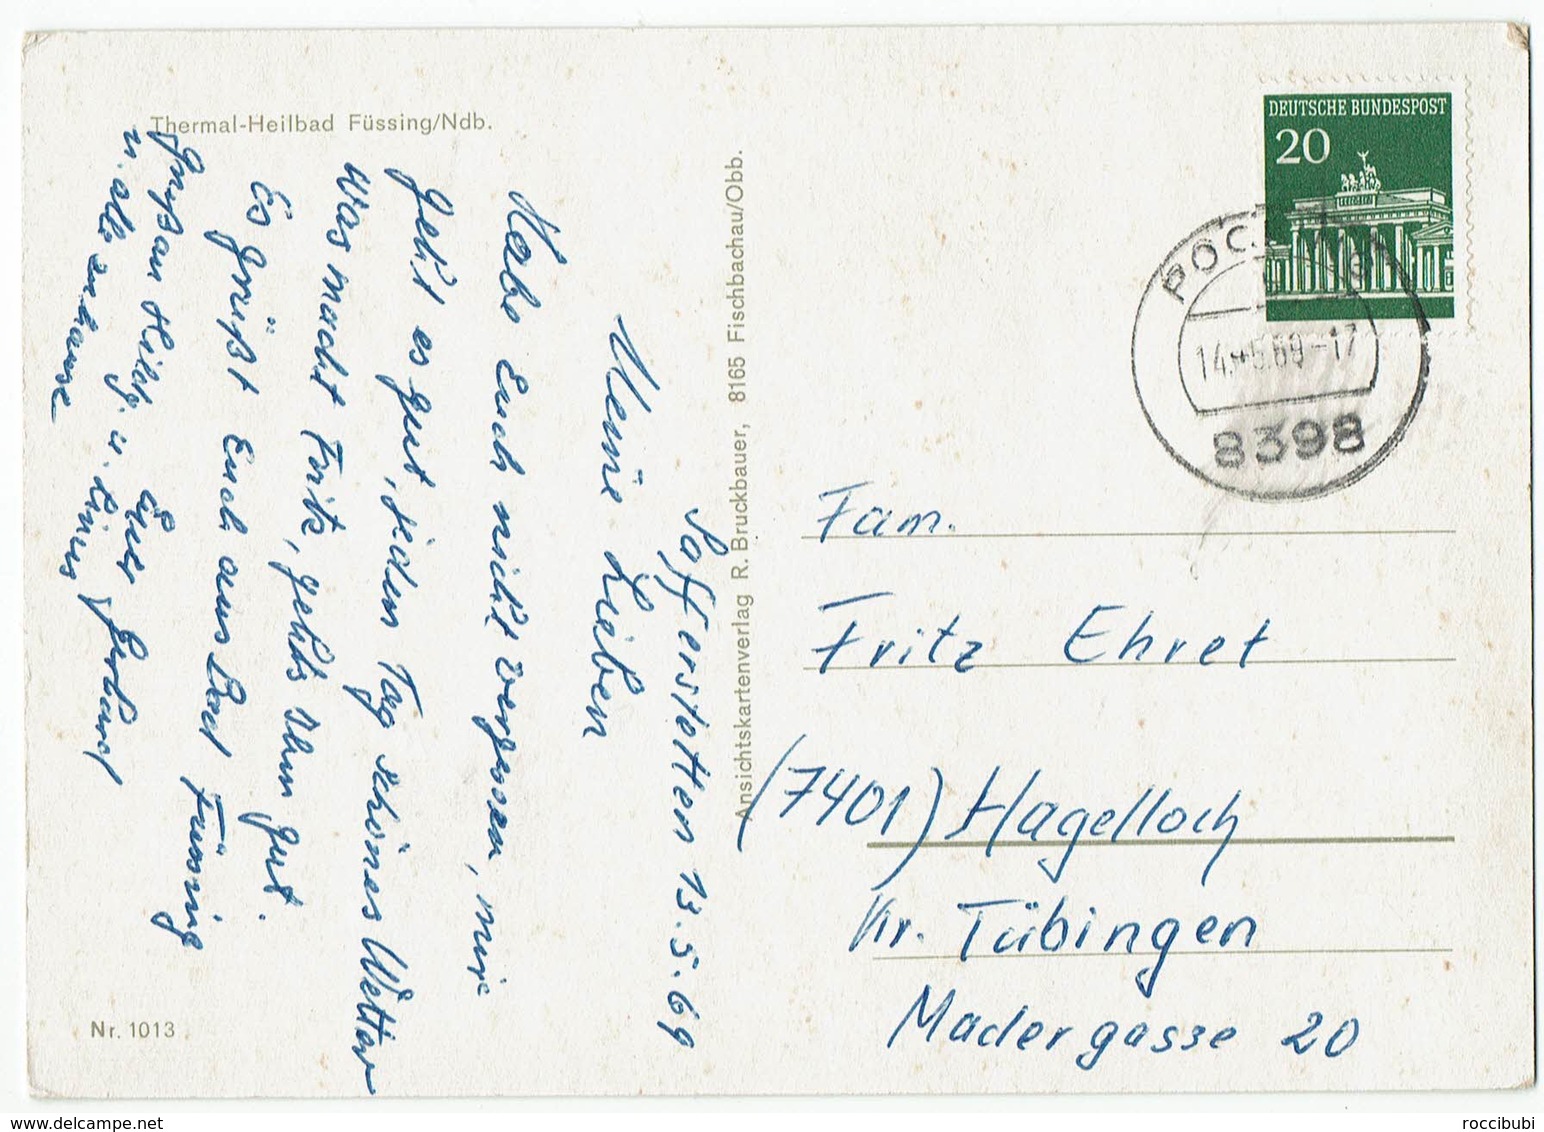 Thermal-Heilbad Füssing/Ndb.
Safferstetten 13.5.69
Meine Lieben
Habe Euch nicht vergessen, mir
geht es gut, jeden Tag schönes Wetter
Was macht Fritz, gehts Ihm gut.
Es grüßt Euch aus Bad Füssing
Euer Gerhard
Gruß an Heidg. u. Linus
u. alle zuhause
Nr. 1013
Ansichtskartenverlag R. Bruckbauer, 8165 Fischbachau/Obb.
DEUTSCHE BUNDESPOST
20
POCKING
14.-5.69-17
8398
Fam.
Fritz Ehret
(7401) Hagelloch
Kr. Tübingen
Madergasse 20
www.delcampe.net
roccibubi